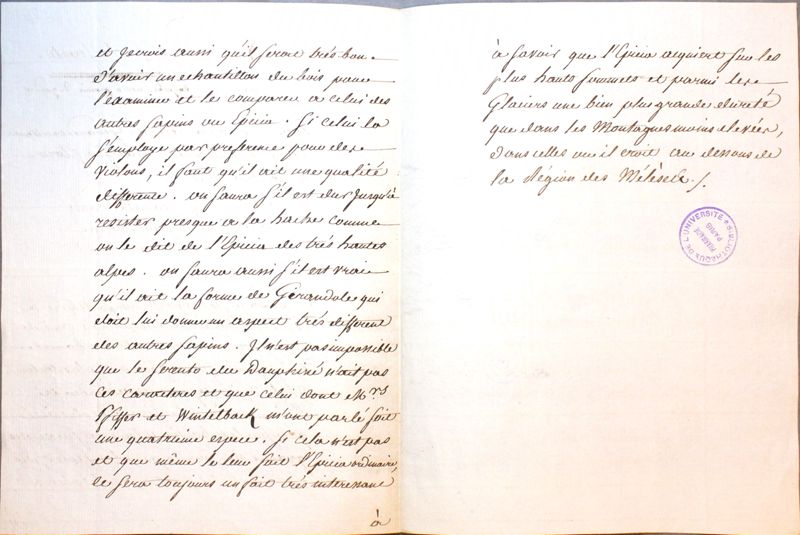 et je crois aussi qu'il seroit très bon
d'avoir un echantillon du bois pour
l'examiner et le comparer a celui des
autres sapins ou Epicia. Si celui la
s'employe par preference pour des
violons, il faut qu'il ait une qualité
differente. on saura s'il est dur jusqu'à
resister presque a la hache comme
on le dit de l'Epicia des très hautes
alpes. on saura aussi s'il est vrai
qu'il ait la forme de Girandole qui
doit lui donner un aspect très different
des autres sapins. Il n'est pas impossible
que le Serento du Dauphiné n'ait pas
ces caracteres et que celui dont Mrs
Pfiffer et Wintelback m'ont parlé soit
une quatrieme espece. Si cela n'est pas
et que même le leur soit l'Epicia ordinaire,
ce sera toujours un fait très interessant
à
à savoir que l'Epicia acquiert sur les
plus hauts sommets et parmi les
Glaciers une bien plus grande dureté
que dans les Montagnes moins elevées,
dans celles ou il croit au dessous de
la Region des Mélèses ./.
BIBLIOTHÈQUE DE L'UNIVERSITÉ
PARIS